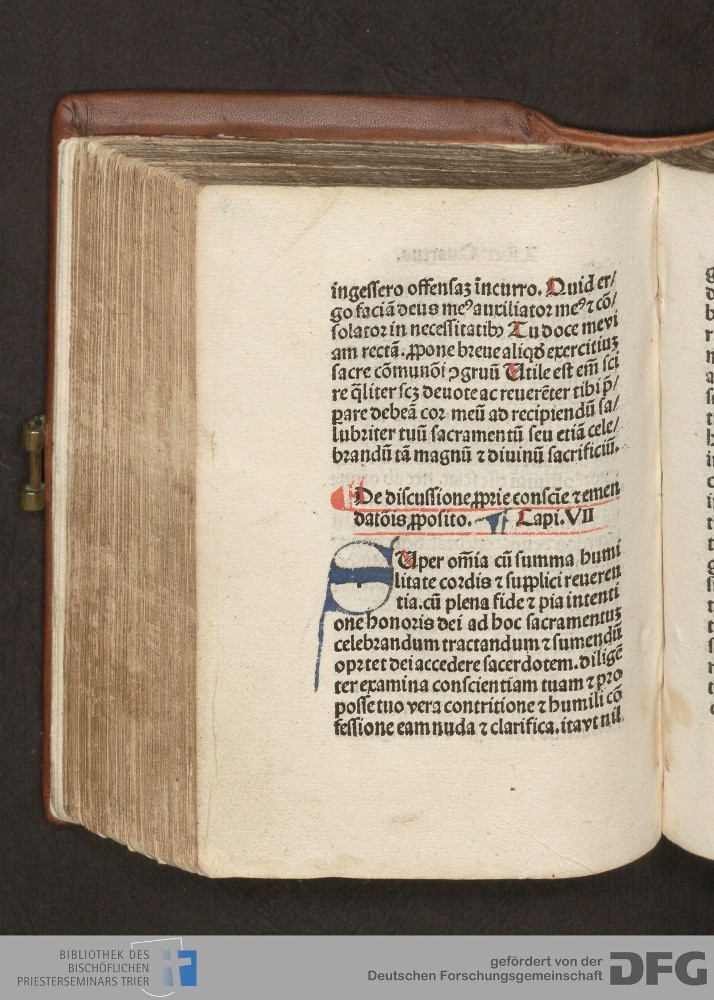 ingessero offensaꝫ incurro. Quid er/
go faciā deus meꝰ auxiliator meꝰ ⁊ cō/
solator in necessitatibꝰ Tu doce me vi
am rectā. ꝓpone breue aliqđ exercitiuꝫ
sacre cōmunōi ꝯgruū Utile est em̄ sci
re q̄liter scꝫ deuote ac reuerēter tibi p̄/
pare debeā cor meū ad recipiendū sa/
lubriter tuū sacramentū seu etiā cele/
brandū tā magnū ⁊ diuinū sacrificiū.
De discussione ꝓprie consciē ⁊ emen
datōis ꝓposito. Capi. VII
SUper om̄ia cū summa humi
litate cordis ⁊ supplici reueren
tia. cū plena fide ⁊ pia intenti
one honoris dei ad hoc sacramentuꝫ
celebrandum tractandum ⁊ sumendū
oprtet dei accedere sacerdotem. diligē
ter examina conscientiam tuam ⁊ pro
posse tuo vera contritione ⁊ humili cō
fessione eam nuda ⁊ clarifica. ita vt nil
BIBLIOTHEK DES
BISCHÖFLICHEN
PRIESTERSEMINARS TRIER
gefördert von der
Deutschen Forschungsgemeinschaft DFG